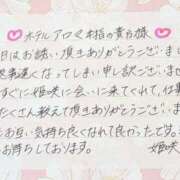 ホテルアロマ本指の貴兄様
日はお誘い頂きありがとうございま
返事遅くなってしまい申し訳ございませ
すぐに姫咲に会いに来てくれて、仕事
たくさん教えて頂きありがとうございま
お互い気持ち良くなれて良かったで
お待ちしております。
姫咲